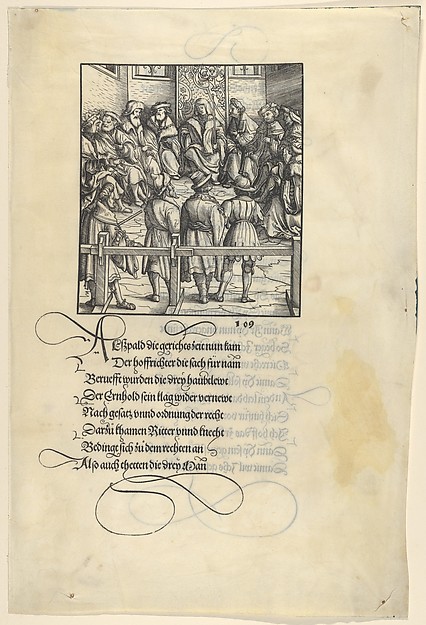 109
Alßpald die gerichts zeit nun kam
Der hoffrichter die sach für nam
Berueft wurden die drey haubtlewt
Der Ernhold sein klag wider vernewt
Nach gesatz vnnd ordnung der recht
Darzů khamen Ritter vnnd knecht
Bedingt sich zů dem rechten an
Also auch thetten die drey Man